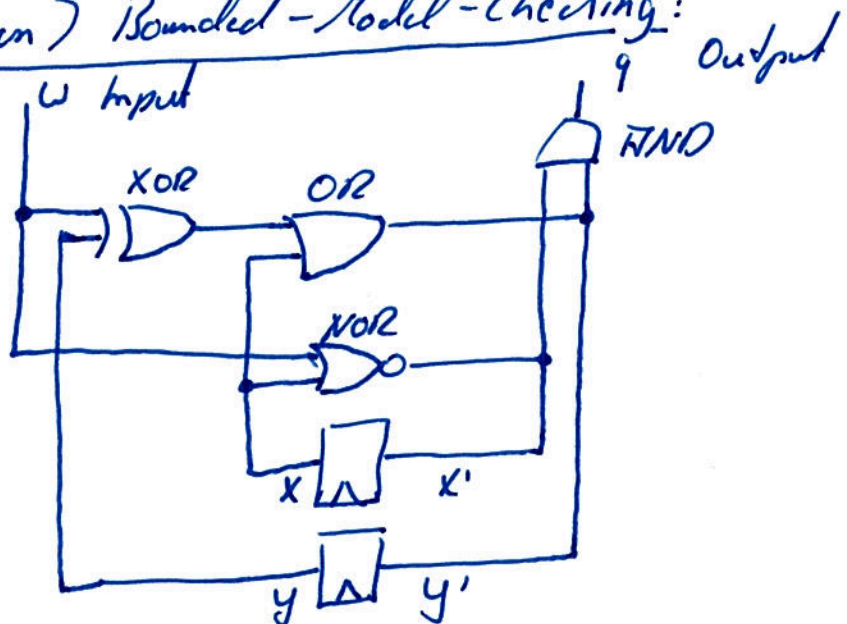 Bounded-Model-Checking:
q Output
w Input
AND
XOR OR
NOR
x x'
y y'